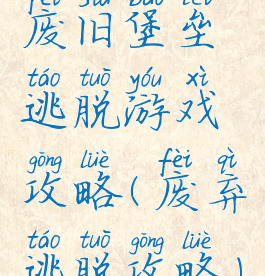 fèi jiù bǎo lěi
废旧堡垒
táo tuō yóu xì
逃脱游戏
gōng lüè fèi qì
攻略(废弃
táo tuō gōng lüè
逃脱攻略)